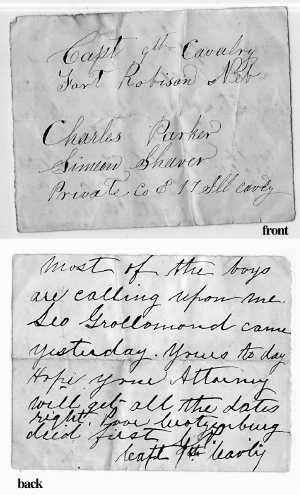 Capt 9th Cavalry
Fort Robison Neb
Charles Parker
Simeon Shaver
Private Co E 17 Ill cavly
front
Most of the boys
are calling upon me.
Geo Grollomond came
yesterday. Yours to day
Hope your Attorney
will get all the dates
right. Love
died first
Capt 9th Cavly
back